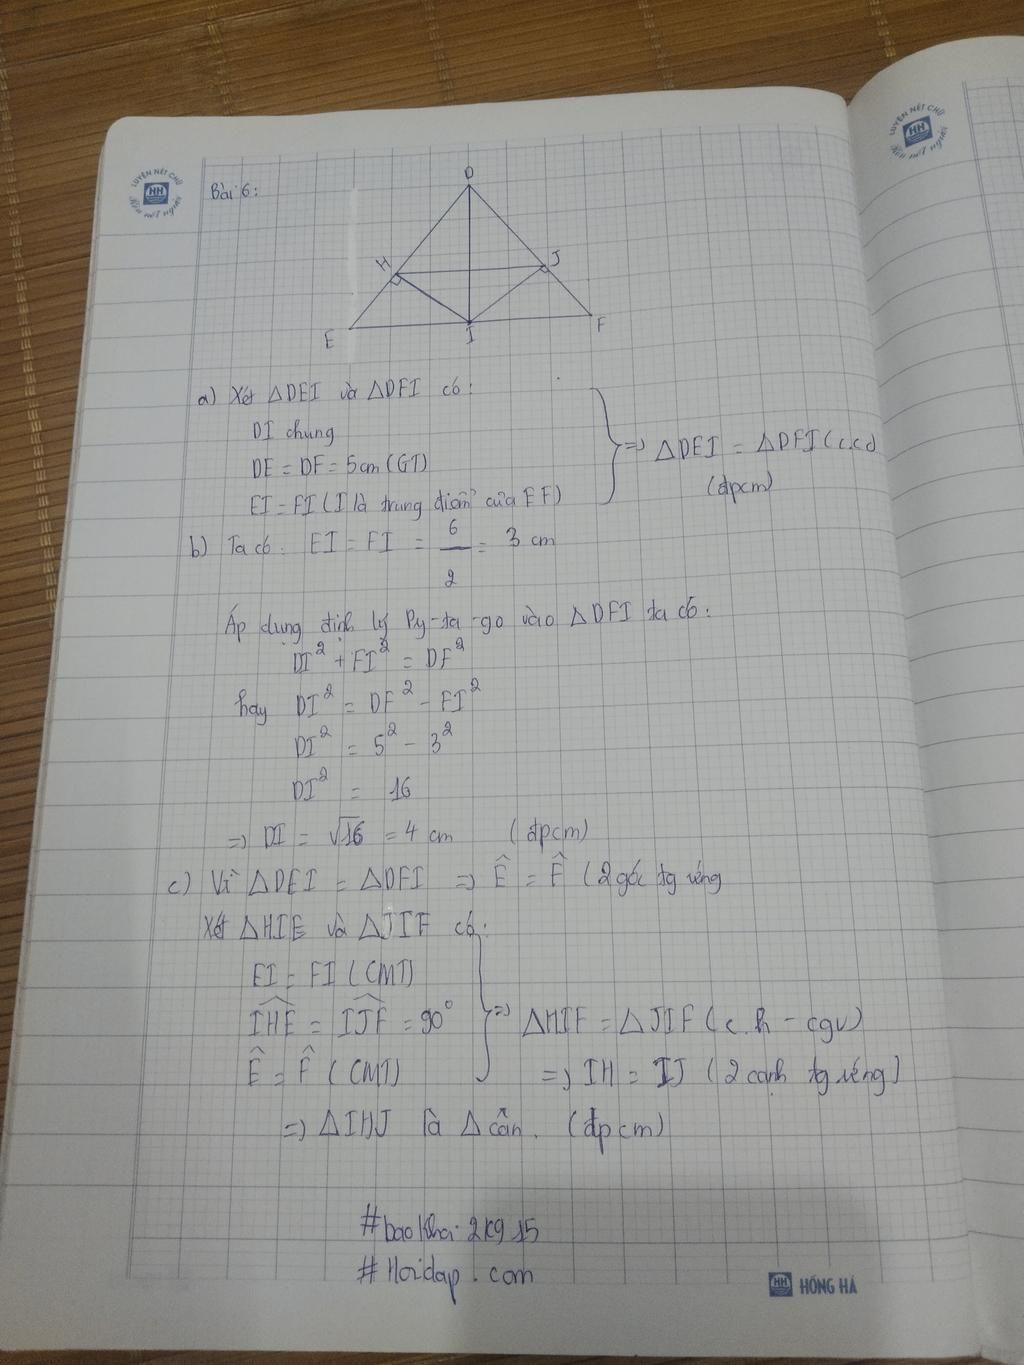 LUYỆN NÉT CHỮ
HH
Rèn nết người
LUYỆN NÉT CHỮ
HH
Rèn nết người
Bài 6:
D
H
J
E
I
F
a) Xét ΔDEI và ΔDFI có:
DI chung
DE = DF = 5cm (GT)
EI = FI (I là trung điểm của EF)
=> ΔDEI = ΔDFI (c.c.c)
(đpcm)
b) Ta có: EI = FI = 6/2 = 3 cm
Áp dụng định lý Py-ta-go vào ΔDFI ta có:
DI² + FI² = DF²
hay DI² = DF² - FI²
DI² = 5² - 3²
DI² = 16
=> DI = √16 = 4 cm (đpcm)
c) Vì ΔDEI = ΔDFI => Ê = F̂ (2 góc tg ứng
Xét ΔHIE và ΔJIF có:
EI = FI (CMT)
IĤE = IĴF = 90°
Ê = F̂ (CMT)
=> ΔHIF = ΔJIF (c.h - cgv)
=> IH = IJ (2 cạnh tg ứng)
=> ΔIHJ là Δ cân. (đpcm)
#baokhoi2k915
#Hoidap.com
HH HỒNG HÀ